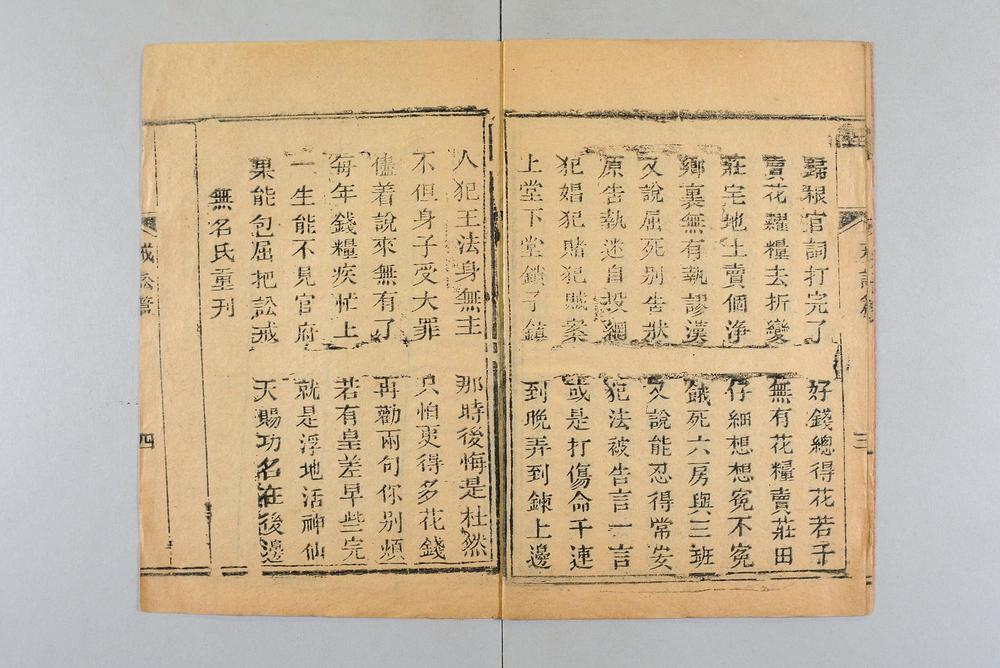 歸根官詞打完了
好錢總得花若干
賣花糶糧去折變
無有花糧賣莊田
莊宅地土賣個净
仔細想想寃不寃
鄉裏無有執謬漢
餓死六房與三班
又說屈死别告狀
又說能忍得常安
原告執迷自投網
犯法被告言一言
犯娼犯賭犯賊案
或是打傷命干連
上堂下堂鎖了鎮
到晚弄到鍊上邊
人犯王法身無主
那時後悔是杜然
不但身子受大罪
只怕更得多花錢
儘着說來無有了
再勸兩句你别煩
每年錢糧疾忙上
若有皇差早些完
一生能不見官府
就是浮地活神仙
果能包屈把訟戒
天賜功名在後邊
無名氏重刊
三
戒訟
四